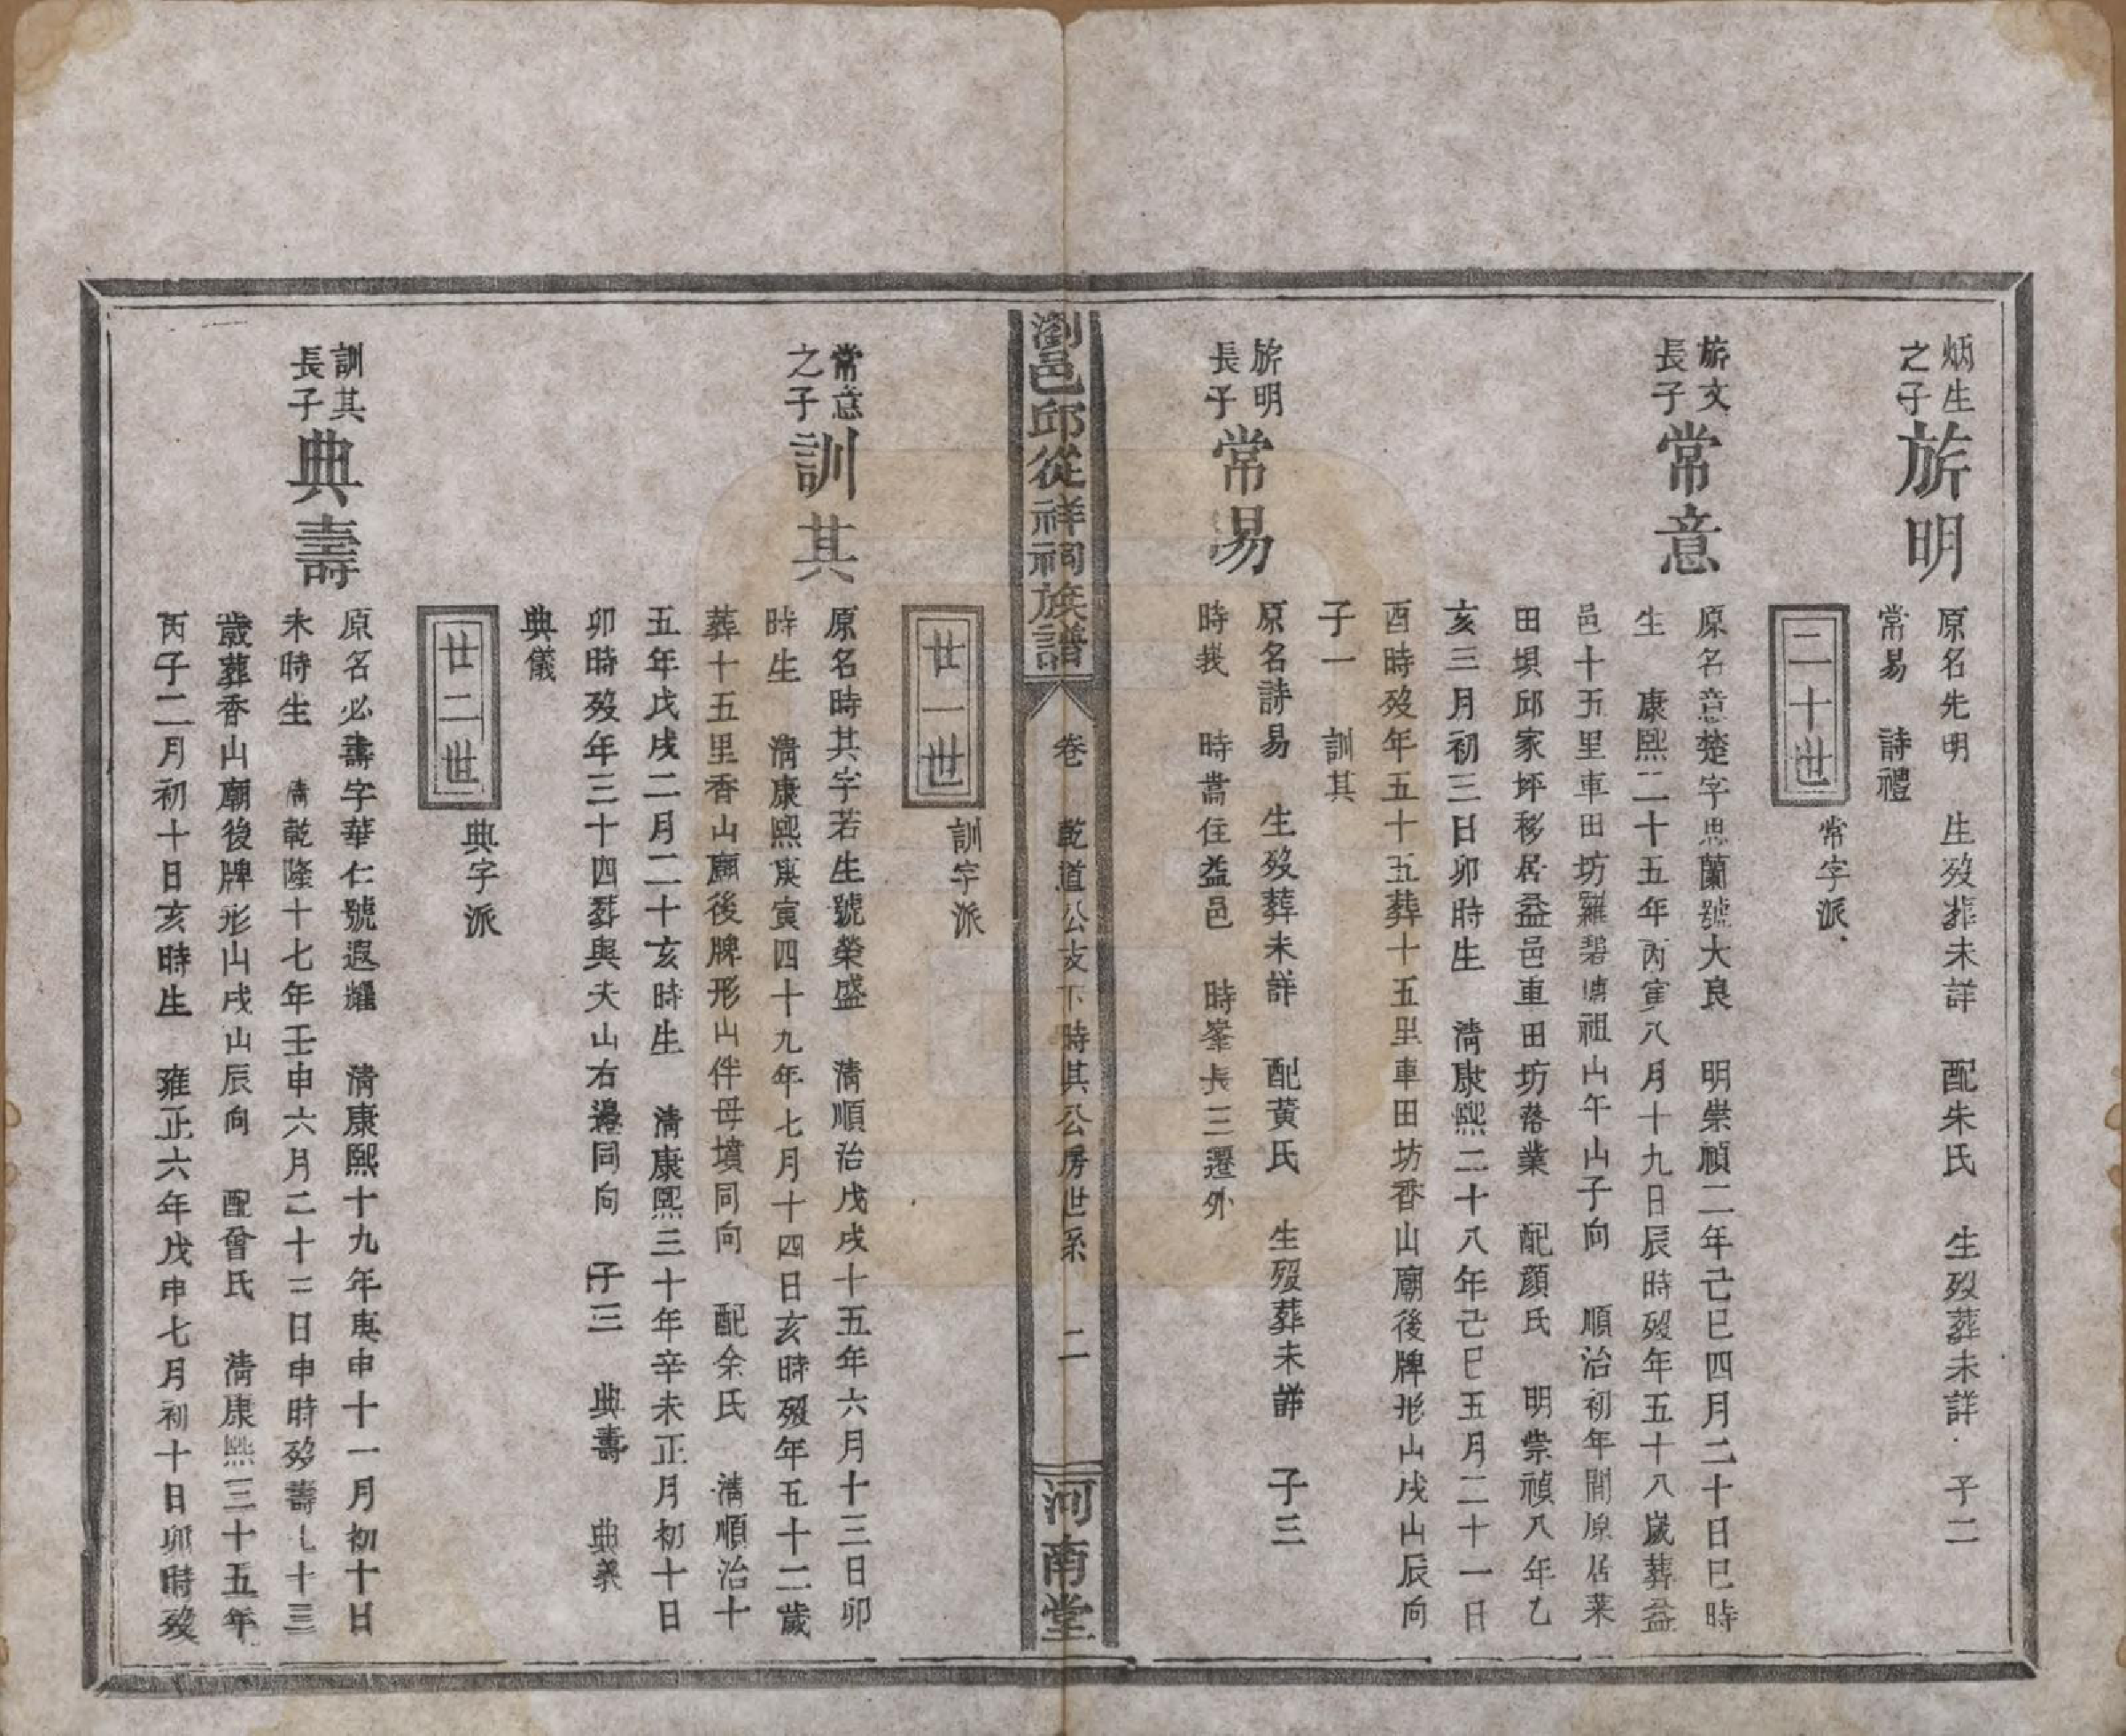 炳生
之子
旂明
原名先明　生歿葬未詳　配朱氏　生歿葬未詳　子二
常易　詩禮
二十世
常字派
旂文
長子
常意
原名意楚字思蘭號大良　明崇禎二年己巳四月二十日巳時
生　康熙二十五年丙寅八月十九日辰時歿年五十八歲葬益
邑十五里車田坊羅碧塘祖山午山子向　順治初年間原居萊
田垻邱家坪移居益邑車田坊落業　配顏氏　明崇禎八年乙
亥三月初三日卯時生　清康熙二十八年己巳五月二十一日
酉時歿年五十五葬十五里車田坊香山廟後牌形山戌山辰向
子一　訓其
旂明
長子
常易
原名詩易　生歿葬未詳　配黃氏　生歿葬未詳　子三
時我　時蒿住益邑　時峯長三遷外
瀏邑邱從祥祠族譜
卷　乾道公支下時其公房世系　二
河南堂
廿一世
訓字派
常意
之子
訓其
原名時其字若生號榮盛　清順治戊戌十五年六月十三日卯
時生　清康熙庚寅四十九年七月十四日亥時歿年五十二歲
葬十五里香山廟後牌形山伴母墳同向　配余氏　清順治十
五年戊戌二月二十亥時生　清康熙三十年辛未正月初十日
卯時歿年三十四葬與夫山右邊同向　子三　典壽　典義
典儀
廿二世
典字派
訓其
長子
典壽
原名必壽字華仁號遐耀　清康熙十九年庚申十一月初十日
未時生　清乾隆十七年壬申六月二十三日申時歿壽七十三
歲葬香山廟後牌形山戌山辰向　配曾氏　清康熙三十五年
丙子二月初十日亥時生　雍正六年戊申七月初十日卯時歿